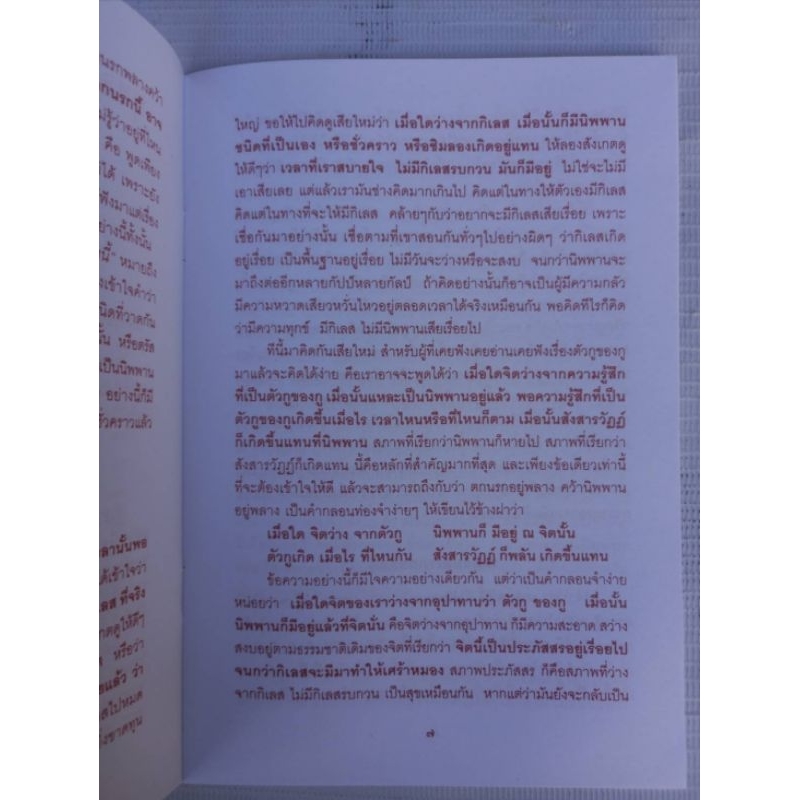 นรกพลางคว้า
กนรกนี้ อาจ
รู้ว่าอยู่ที่ไหน
คือ พูดเพียง
ได้ เพราะยัง
ฟังมาแต่เรื่อง
อย่างนี้ทั้งนั้น
นี้" หมายถึง
งเข้าใจคำว่า
นิดที่วาดกัน
น หรือตรัส
เป็นนิพพาน
อย่างนี้ก็มี
ชั่วคราวแล้ว
เวลานั้นพอ
ได้เข้าใจว่า
ลส ที่จริง
เกตดูให้ดีๆ
หรือว่า
อแล้ว ว่า
สไปหมด
ใหญ่ ขอให้ไปคิดดูเสียใหม่ว่า เมื่อใดว่างจากกิเลส เมื่อนั้นก็มีนิพพาน
ชนิดที่เป็นเอง หรือชั่วคราว หรือชิมลองเกิดอยู่แทน ให้ลองสังเกตดู
ให้ดีๆว่า เวลาที่เราสบายใจ ไม่มีกิเลสรบกวน มันก็มีอยู่ ไม่ใช่จะไม่มี
เอาเสียเลย แต่แล้วเรามันช่างคิดมากเกินไป คิดแต่ในทางให้ตัวเองมีกิเลส
คิดแต่ในทางที่จะให้มีกิเลส คล้ายๆกับว่าอยากจะมีกิเลสเสียเรื่อย เพราะ
เชื่อกันมาอย่างนั้น เชื่อตามที่เขาสอนกันทั่วๆไปอย่างผิดๆ ว่ากิเลสเกิด
อยู่เรื่อย เป็นพื้นฐานอยู่เรื่อย ไม่มีวันจะว่างหรือจะสงบ จนกว่านิพพานจะ
มาถึงต่ออีกหลายกัปป์หลายกัลป์ ถ้าคิดอย่างนั้นก็อาจเป็นผู้มีความกลัว
มีความหวาดเสียวหวั่นไหวอยู่ตลอดเวลาได้จริงเหมือนกัน พอคิดทีไรก็คิด
ว่ามีความทุกข์ มีกิเลส ไม่มีนิพพานเสียเรื่อยไป
ทีนี้มาคิดกันเสียใหม่ สำหรับผู้ที่เคยฟังเคยอ่านเคยฟังเรื่องตัวกูของกู
มาแล้วจะคิดได้ง่าย คือเราอาจจะพูดได้ว่า เมื่อใดจิตว่างจากความรู้สึก
ที่เป็นตัวกูของกู เมื่อนั้นแหละเป็นนิพพานอยู่แล้ว พอความรู้สึกที่เป็น
ตัวกูของกูเกิดขึ้นเมื่อไร เวลาไหนหรือที่ไหนก็ตาม เมื่อนั้นสังสารวัฏฏ์
ก็เกิดขึ้นแทนที่นิพพาน สภาพที่เรียกว่านิพพานก็หายไป สภาพที่เรียกว่า
สังสารวัฏฏ์ก็เกิดแทน นี้คือหลักที่สำคัญมากที่สุด และเพียงข้อเดียวเท่านี้
ที่จะต้องเข้าใจให้ดี แล้วจะสามารถถึงกับว่า ตกนรกอยู่พลาง คว้านิพพาน
อยู่พลาง เป็นคำกลอนท่องจำง่ายๆ ให้เขียนไว้ข้างฝาว่า
เมื่อใด จิตว่าง จากตัวกู นิพพานก็ มีอยู่ ณ จิตนั้น
ตัวกูเกิด เมื่อไร ที่ไหนกัน สังสารวัฏฏ์ ก็พลัน เกิดขึ้นแทน
ข้อความอย่างนี้ก็มีใจความอย่างเดียวกัน แต่ว่าเป็นคำกลอนจำง่าย
หน่อยว่า เมื่อใดจิตของเราว่างจากอุปาทานว่า ตัวกู ของกู เมื่อนั้น
นิพพานก็มีอยู่แล้วที่จิตนั่น คือจิตว่างจากอุปาทาน ก็มีความสะอาด สว่าง
สงบอยู่ตามธรรมชาติเดิมของจิตที่เรียกว่า จิตนี้เป็นประภัสสรอยู่เรื่อยไป
จนกว่ากิเลสจะมีมาทำให้เศร้าหมอง สภาพประภัสสร ก็คือสภาพที่ว่าง
จากกิเลส ไม่มีกิเลสรบกวน เป็นสุขเหมือนกัน หากแต่ว่ามันยังจะกลับเป็น
๗